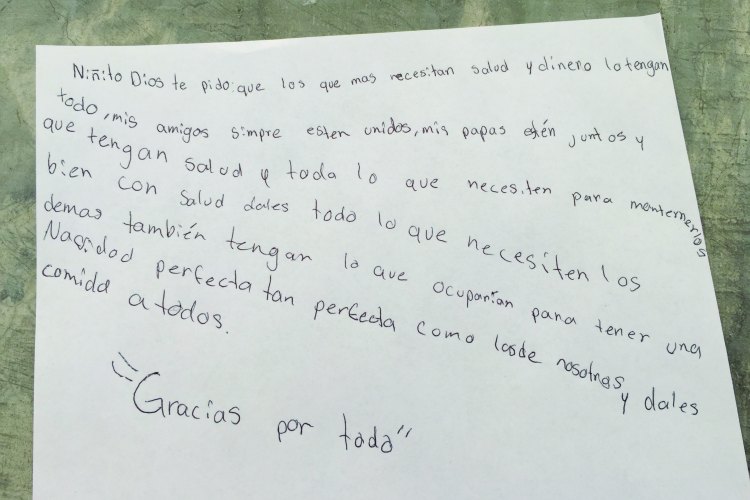 Niñito Dios te pido: que los que mas necesitan salud y dinero lo tengan
todo, mis amigos simpre esten unidos, mis papas estén juntos y
que tengan salud y todo lo que necesiten para mantenerlos
bien con salud dales todo lo que necesiten los
demas también tengan lo que ocuparían para tener una
Navidad perfecta tan perfecta como las de nosotras y dales
comida a todos.
"Gracias por todo"